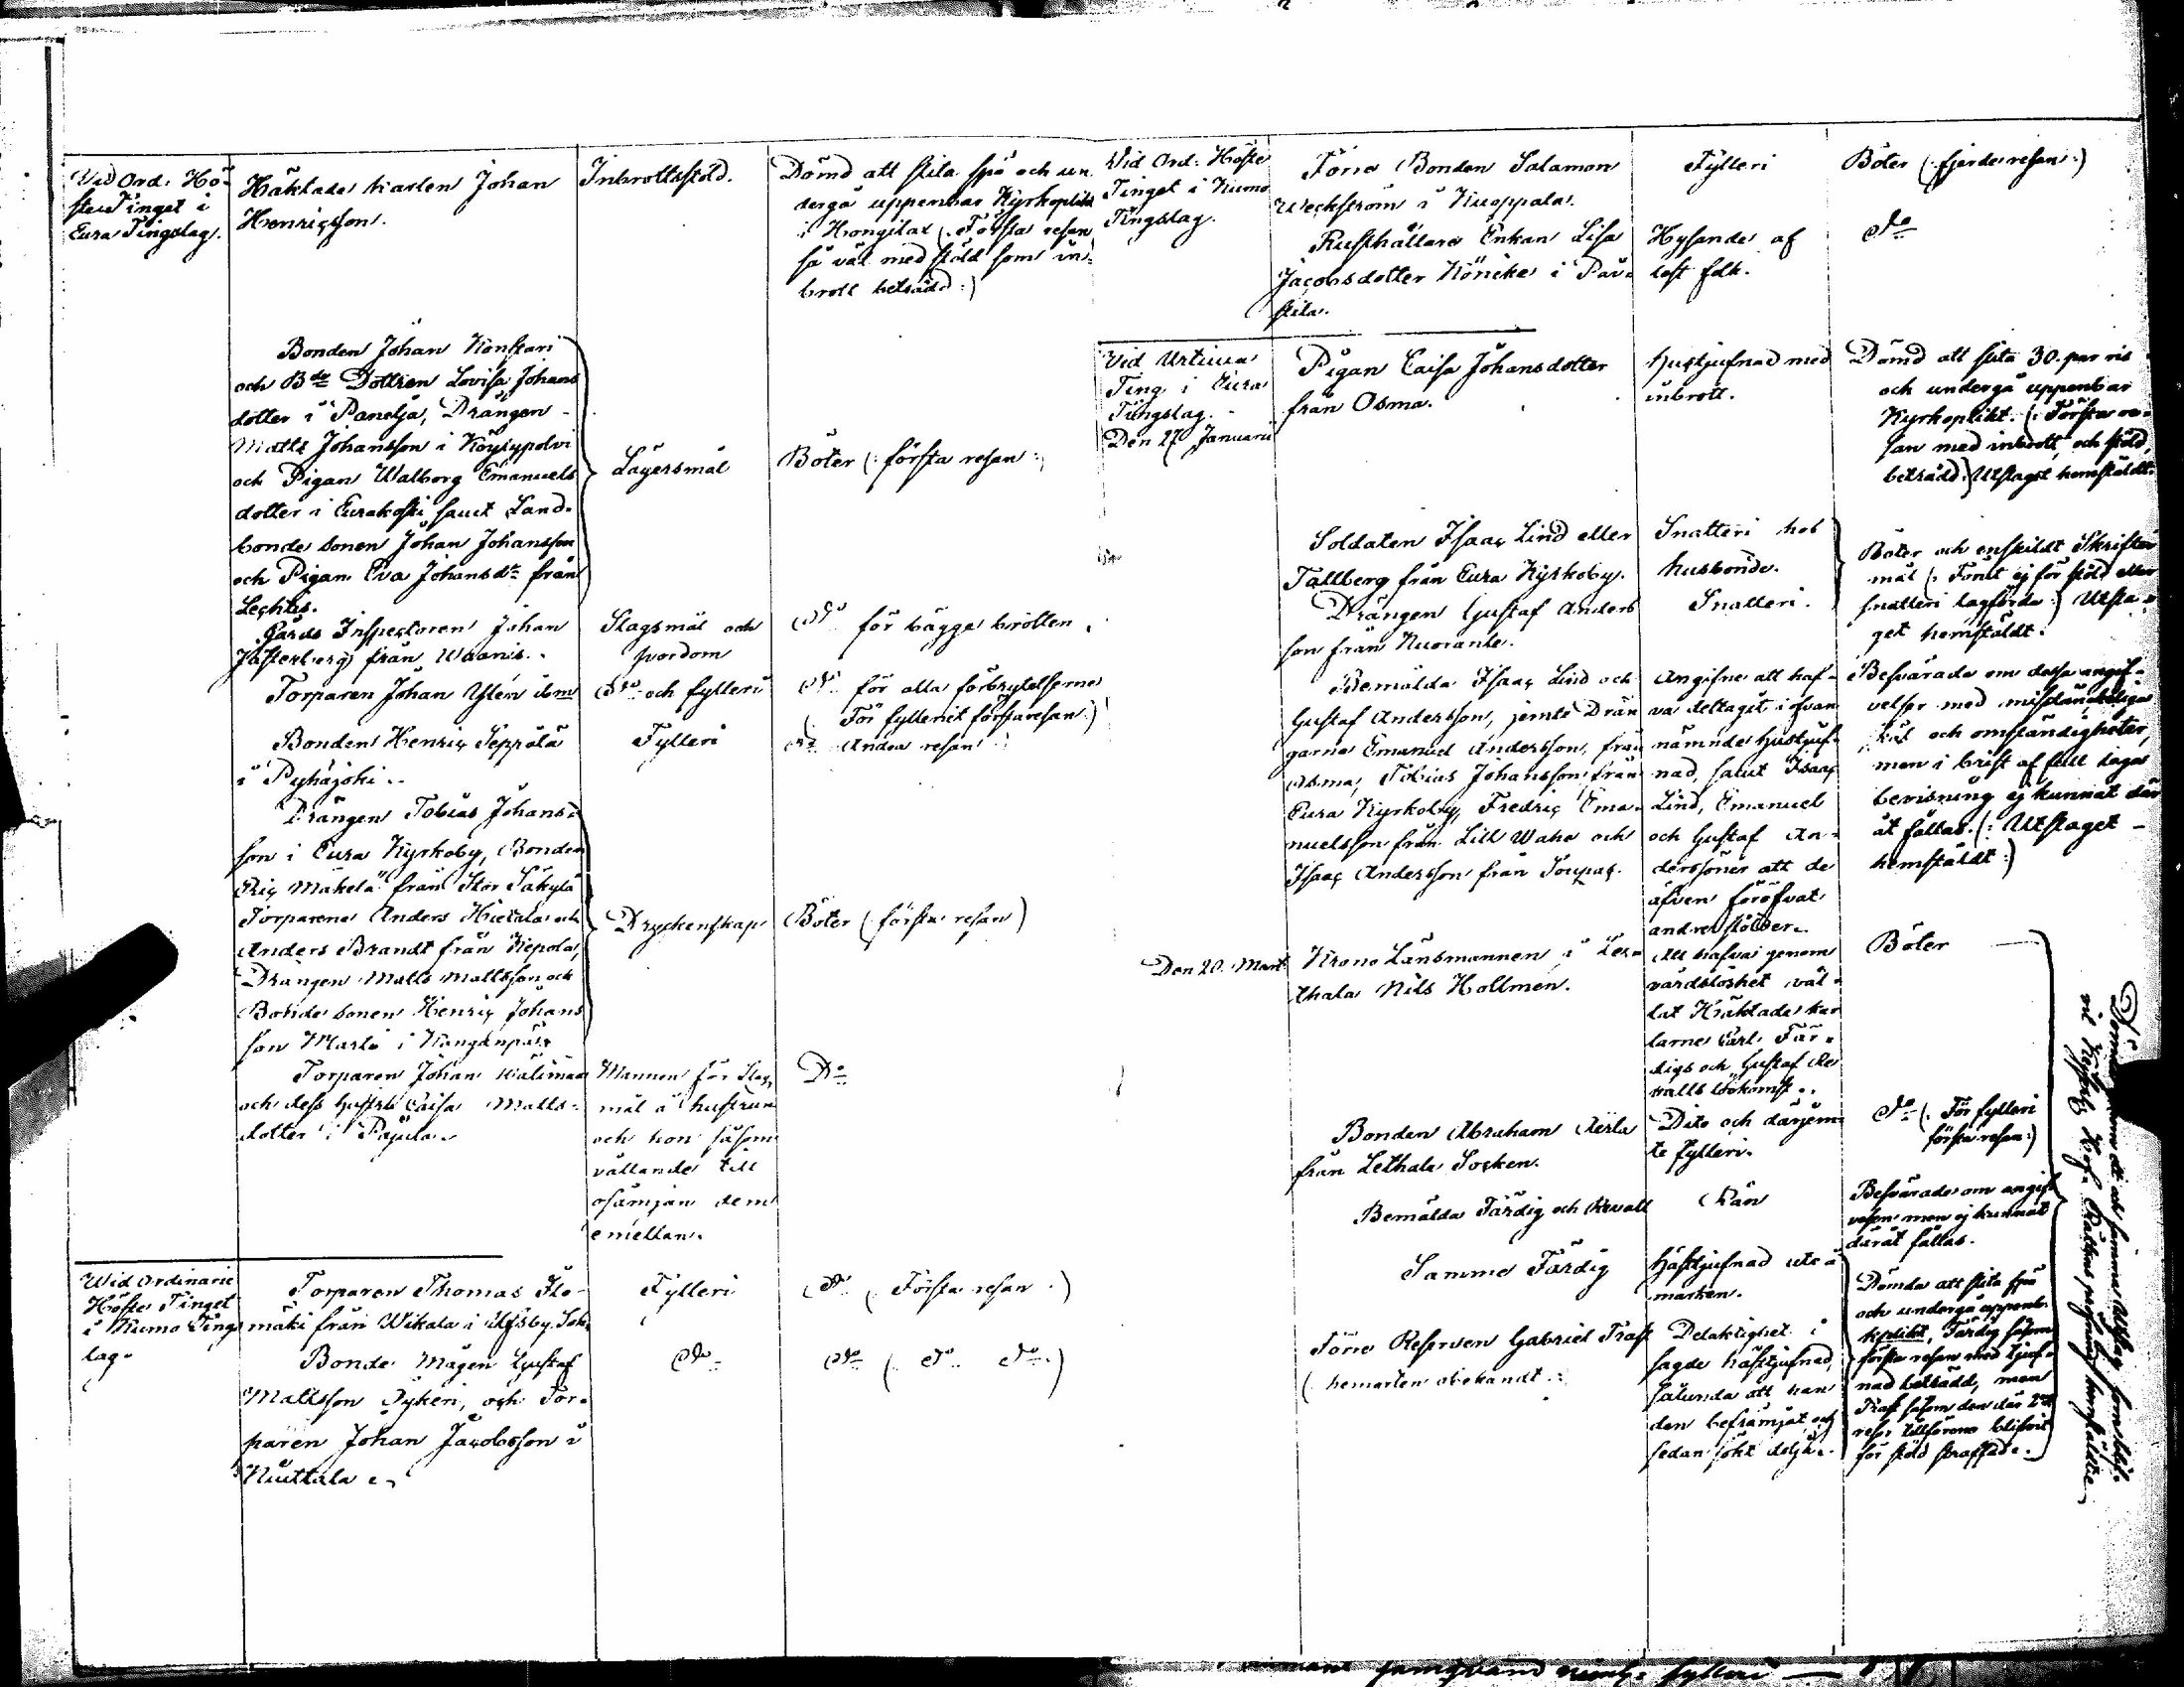 Vid Ord. Hö-
ste Tinget i
Eura Tingslag.
Häktade karlen Johan
Henricsson.
Inbrottsstöld.
Dömd att slita spö och un-
dergå uppenbar Kyrkoplikt
i Hongilax (: Första resan
så väl med stöld som in-
brott beträdd :)
Bonden Johan Konstari
och B:de Dottren Lovisa Johans
dotter i Panelja, Drängen
Matts Johansson i Köylypolvi
och Pigan Walborg Emanuels
dotter i Eurakoski samt Land-
bonde sonen Johan Johansson
och Pigan Eva Johansd:r från
Lechtis.
Lägersmål
Böter (: första resan :)
Gårds Inspectoren Johan
från Waanis.
Slagsmål och
svordom
D:o för bägge brotten
Torparen Johan Ylén ibm
D:o och fylleri
D:o för alla förbrytelserne
(: För fylleriet första resan :)
Bonden Henric Seppälä
i Pyhäjoki.
Fylleri
D:o Andra resan
Drängen Tobias Johans-
son i Eura Kyrkoby, Bonden
Eric Mäkelä från Stor Säkylä
Torparena Anders Hietala och
Anders Brandt från Kepola,
Drängen Matts Mattsson och
Bonde sonen Henric Johans
son Marti i Kanganpää.
Dryckenskap
Böter (: första resan)
Torparen Johan Kälimaa
och dess hustru Caisa Matts-
dotter i Pajula.
Mannen för slags
mål å hustrun
och hon såsom
vållande till
osämjan dem
emellan.
D:o
Wid Ordinarie
Höste Tinget
i Kumo Tings
lag.
Torparen Thomas Ilo-
mäki från Wikala i Ulfsby Sokn
Fylleri
D:o (: Första resan :)
Bonde Mågen Gustaf
Mattsson Pykeri, och Tor-
paren Johan Jacobsson i
Niuttala
D:o
D:o (: D:o D:o :)
Vid Ord. Höste
Tinget i Kumo
Tingslag.
Förre Bonden Salamon
Weckström i Kuoppala.
Fylleri
Böter (: fjerde resan :)
Rusthållare Enkan Lisa
Jacobsdotter Könike i Pär-
stila.
Hysande af
löst folk.
D:o
Vid Urtima
Ting i Eura
Tingslag.
Den 27 Januarii
Pigan Caisa Johansdotter
från Osma.
Hustjufnad med
inbrott.
Dömd att slita 30. par ris
och undergå uppenbar
Kyrkoplikt. (: Första re-
san med inbrott och stöld
beträdd :) Utslaget hemstäldt.
Soldaten Isaac Lind eller
Tallberg från Eura Kyrkoby.
Snatteri hos
husbonde.
Drängen Gustaf Anders
son från Nuoranta.
Snatteri.
Böter och enskildt Skrifter
mål (: Förut ej för stöld eller
snatteri lagförde :) Utsla-
get hemstäldt.
Bemälda Isaac Lind och
Gustaf Andersson, jemte Drän
garne Emanuel Andersson, från
Osma, Tobias Johansson från
Eura Kyrkoby, Fredric Ema-
nuelsson från Lill Waha och
Isaac Andersson från Soupas.
Angifne att haf-
va deltagit i ofvan
nämnde hustjuf-
nad, samt Isaac
Lind, Emanuel
och Gustaf An-
derssöner att de
äfven föröfvat
andre stölder.
Besvärade om dessa angif-
velser med misstänkeliga
skäl och omständigheter,
men i brist af full laga
bevisning ej kunnat där
åt fällas. (: Utslaget
hemstäldt :)
Den 20. Mart.
Krono Länsmannen i Let-
hala Nils Hollmén.
Att hafva genom
vårdslöshet vål-
lat Häktade kar
larne Carl Fär-
digs och Gustaf
walls lösskomst.
Böter
Bonden Abraham Äerla
från Lethala Socken.
Dito och därjem
te fylleri.
D:o (: För fylleri
första resan :)
Bemälda Färdig och
Rån
Besvärade om angif
velsen men ej kunnat
däråt fällas.
Samme Färdig
Hästtjufnad ute å
marken.
Förre Reserven Gabriel Trast
(: hemorten obekandt :)
Delaktighet i
sagde hästtjufnad,
sålunda att han
den befrämjat och
sedan sökt dölja.
Dömda att slita spö
och undergå uppenb.
kplikt, Färdig såsom
första resan med tjuf-
nad beträdd, men
Trast såsom den där 2:ne
resor tillförene blifvit
för stöld straffad.
utslag
Hofs Rättens pröfning hemstäldte.
fylleri